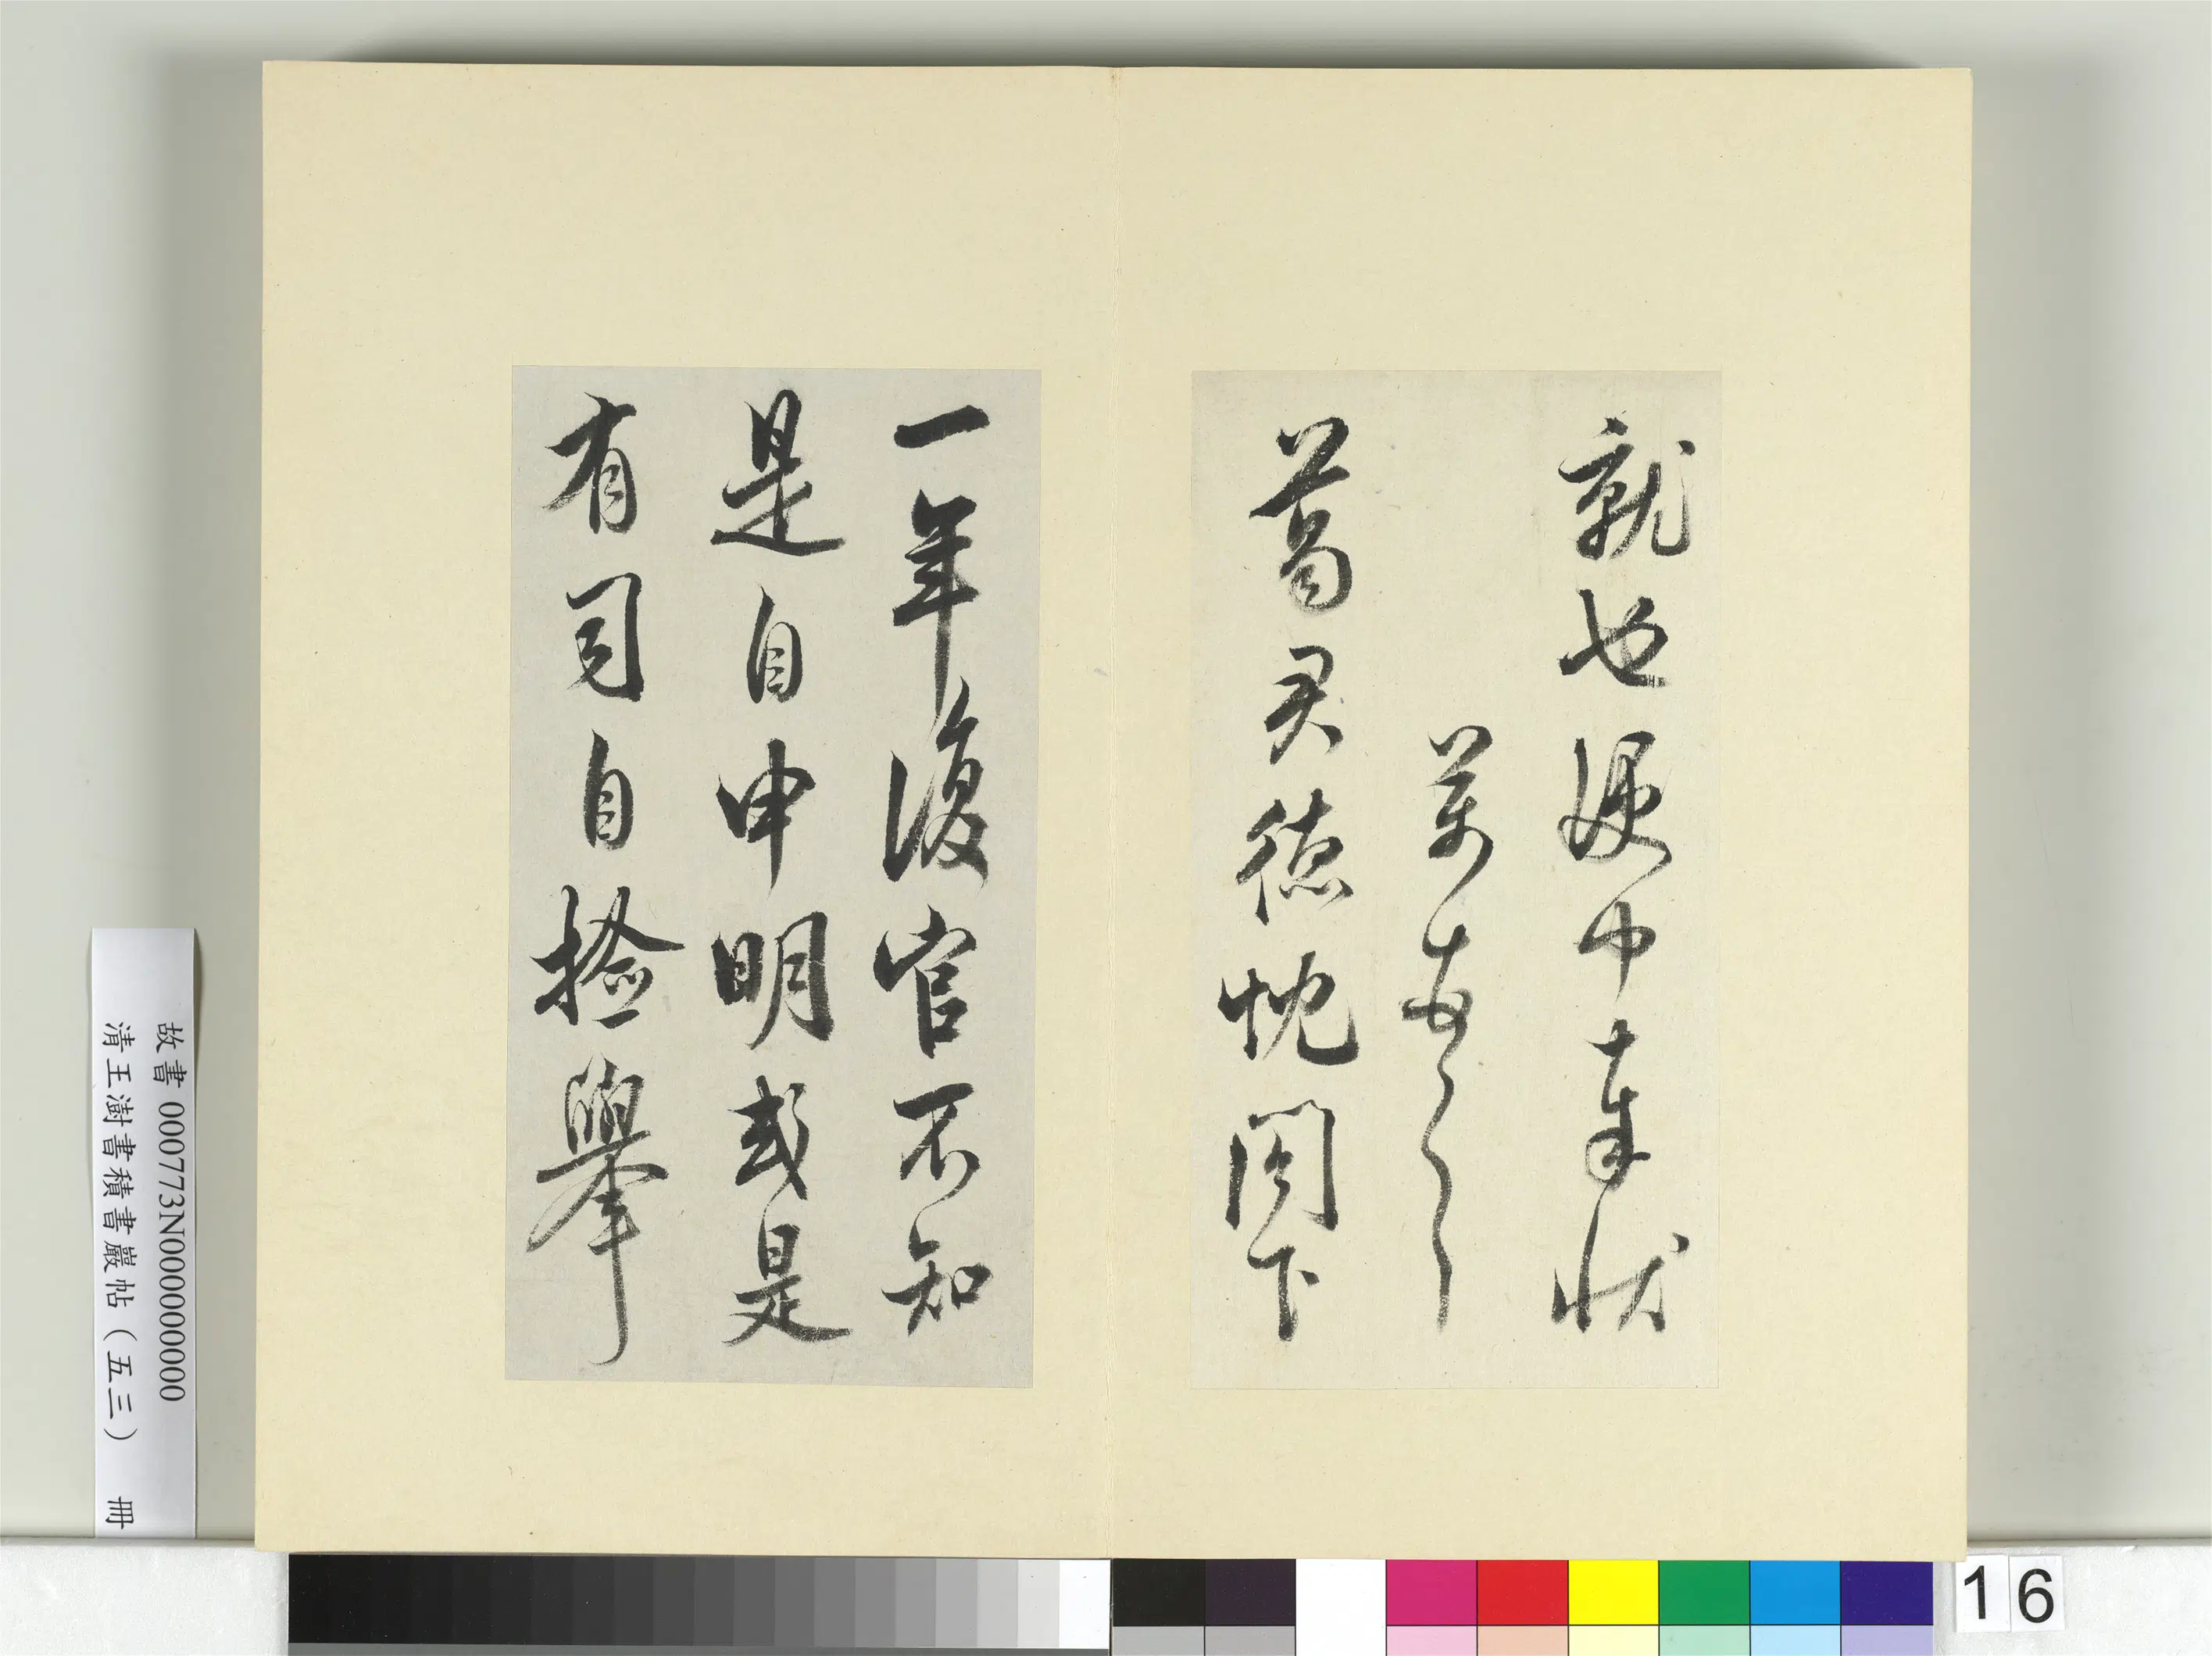 就也便中奉狀
芾頓首
葛君德忱閣下
一年復官不知
是自申明或是
有司自撿舉
故書 000773N000000000
清王澍書積書巖帖（五三） 冊
16